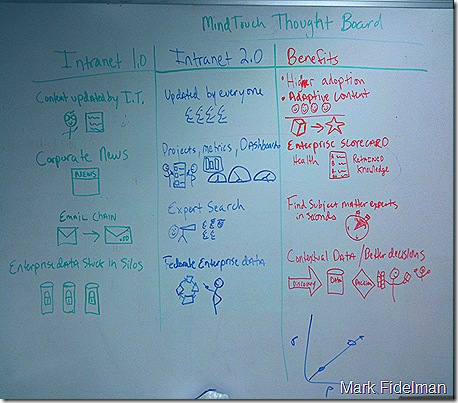 MindTouch Thought Board
Intranet 1.0
Intranet 2.0
Benefits
Content updated by I.T.
Updated by everyone
• Higher adoption
• Adaptive content
Corporate News
NEWS
Projects, metrics, Dashboards
Enterprise Scorecard
Health
Retained
Knowledge
Email Chain
Expert Search
Find Subject matter experts
in seconds
Enterprise Data Stuck in Silos
Federate Enterprise Data
Contextual Data / Better decisions
Discovery
Data
Decision
σ
ρ
Mark Fidelman